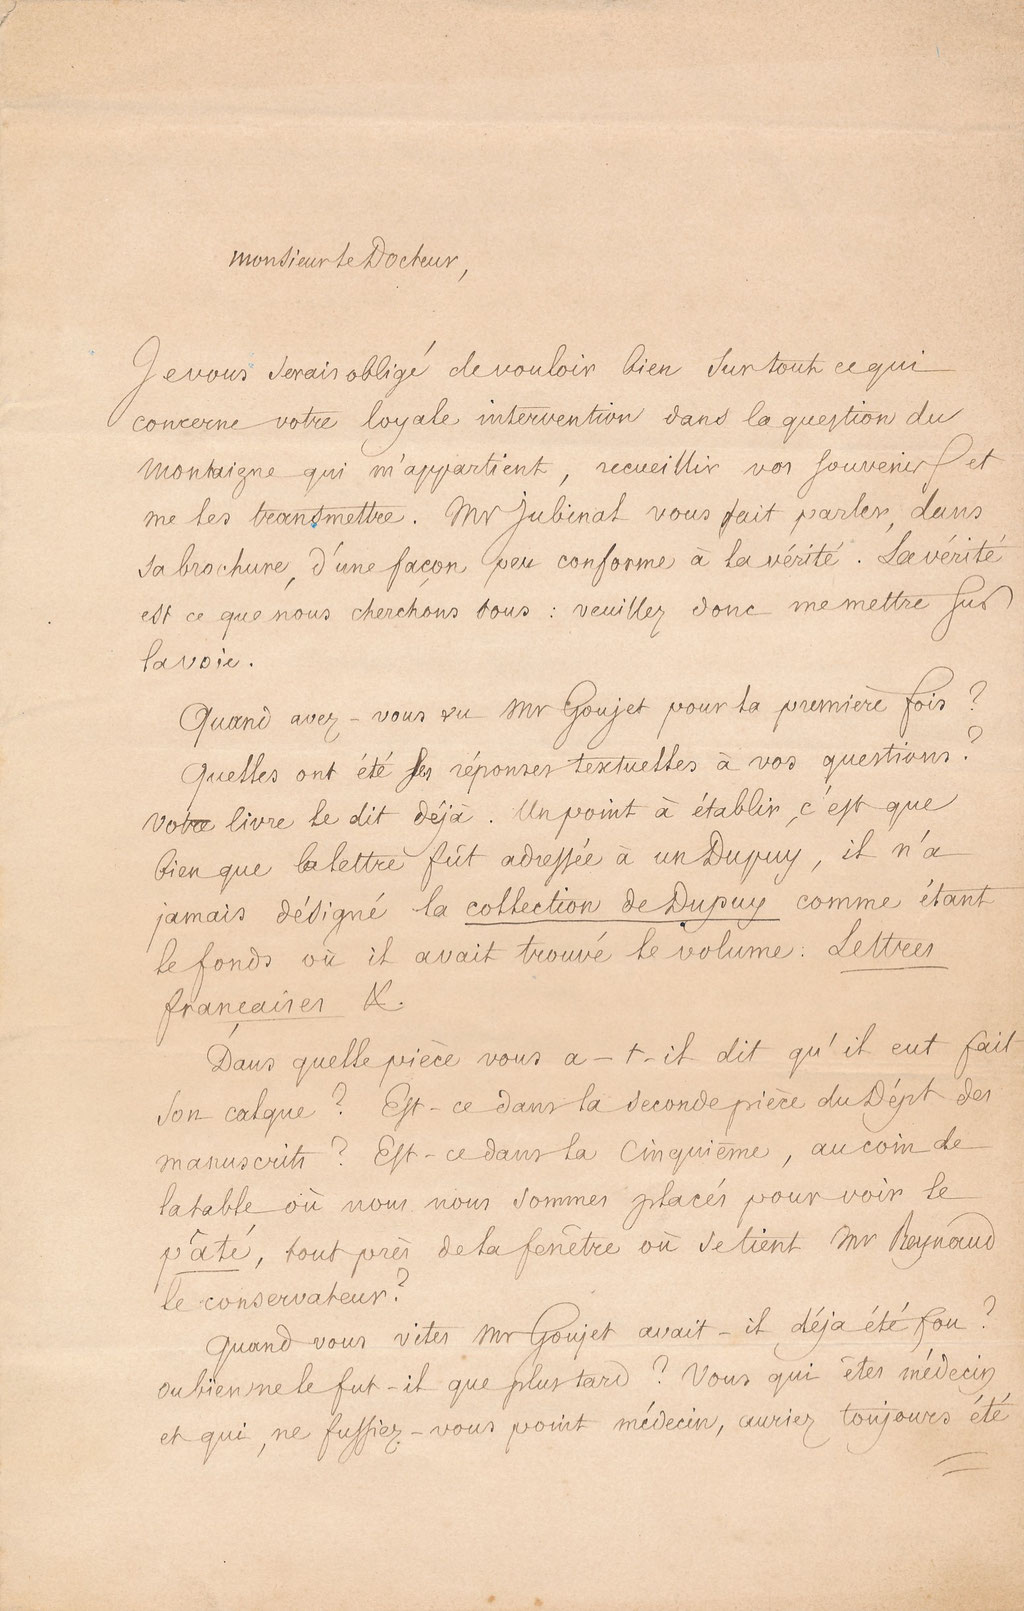 Monsieur le Docteur,
Je vous serais obligé de vouloir bien sur tout ce qui
concerne votre loyale intervention dans la question du
Montaigne qui m'appartient, recueillir vos souvenirs et
me les transmettre. Mr Jubinal vous fait parler, dans
sa brochure, d'une façon peu conforme à la vérité. La vérité
est ce que nous cherchons tous : veuillez donc me mettre sur
la voie.
Quand avez-vous vu Mr Goujet pour la première fois ?
Quelles ont été ses réponses textuelles à vos questions ?
Votre livre le dit déjà. Un point à établir, c'est que
bien que la lettre fût adressée à un Dupuy, il n'a
jamais désigné la collection de Dupuy comme étant
le fonds où il avait trouvé le volume : Lettres
françaises &.
Dans quelle pièce vous a-t-il dit qu'il eut fait
son calque ? Est-ce dans la seconde pièce du Dépt des
manuscrits ? Est-ce dans la cinquième, au coin de
la table où nous nous sommes placés pour voir le
pâté, tout près de la fenêtre où se tient Mr Reynaud
le conservateur ?
Quand vous vites Mr Goujet avait-il déja été fou ?
ou bien ne le fut-il que plus tard ? Vous qui êtes médecin
et qui, ne fussiez-vous point médecin, auriez toujours été